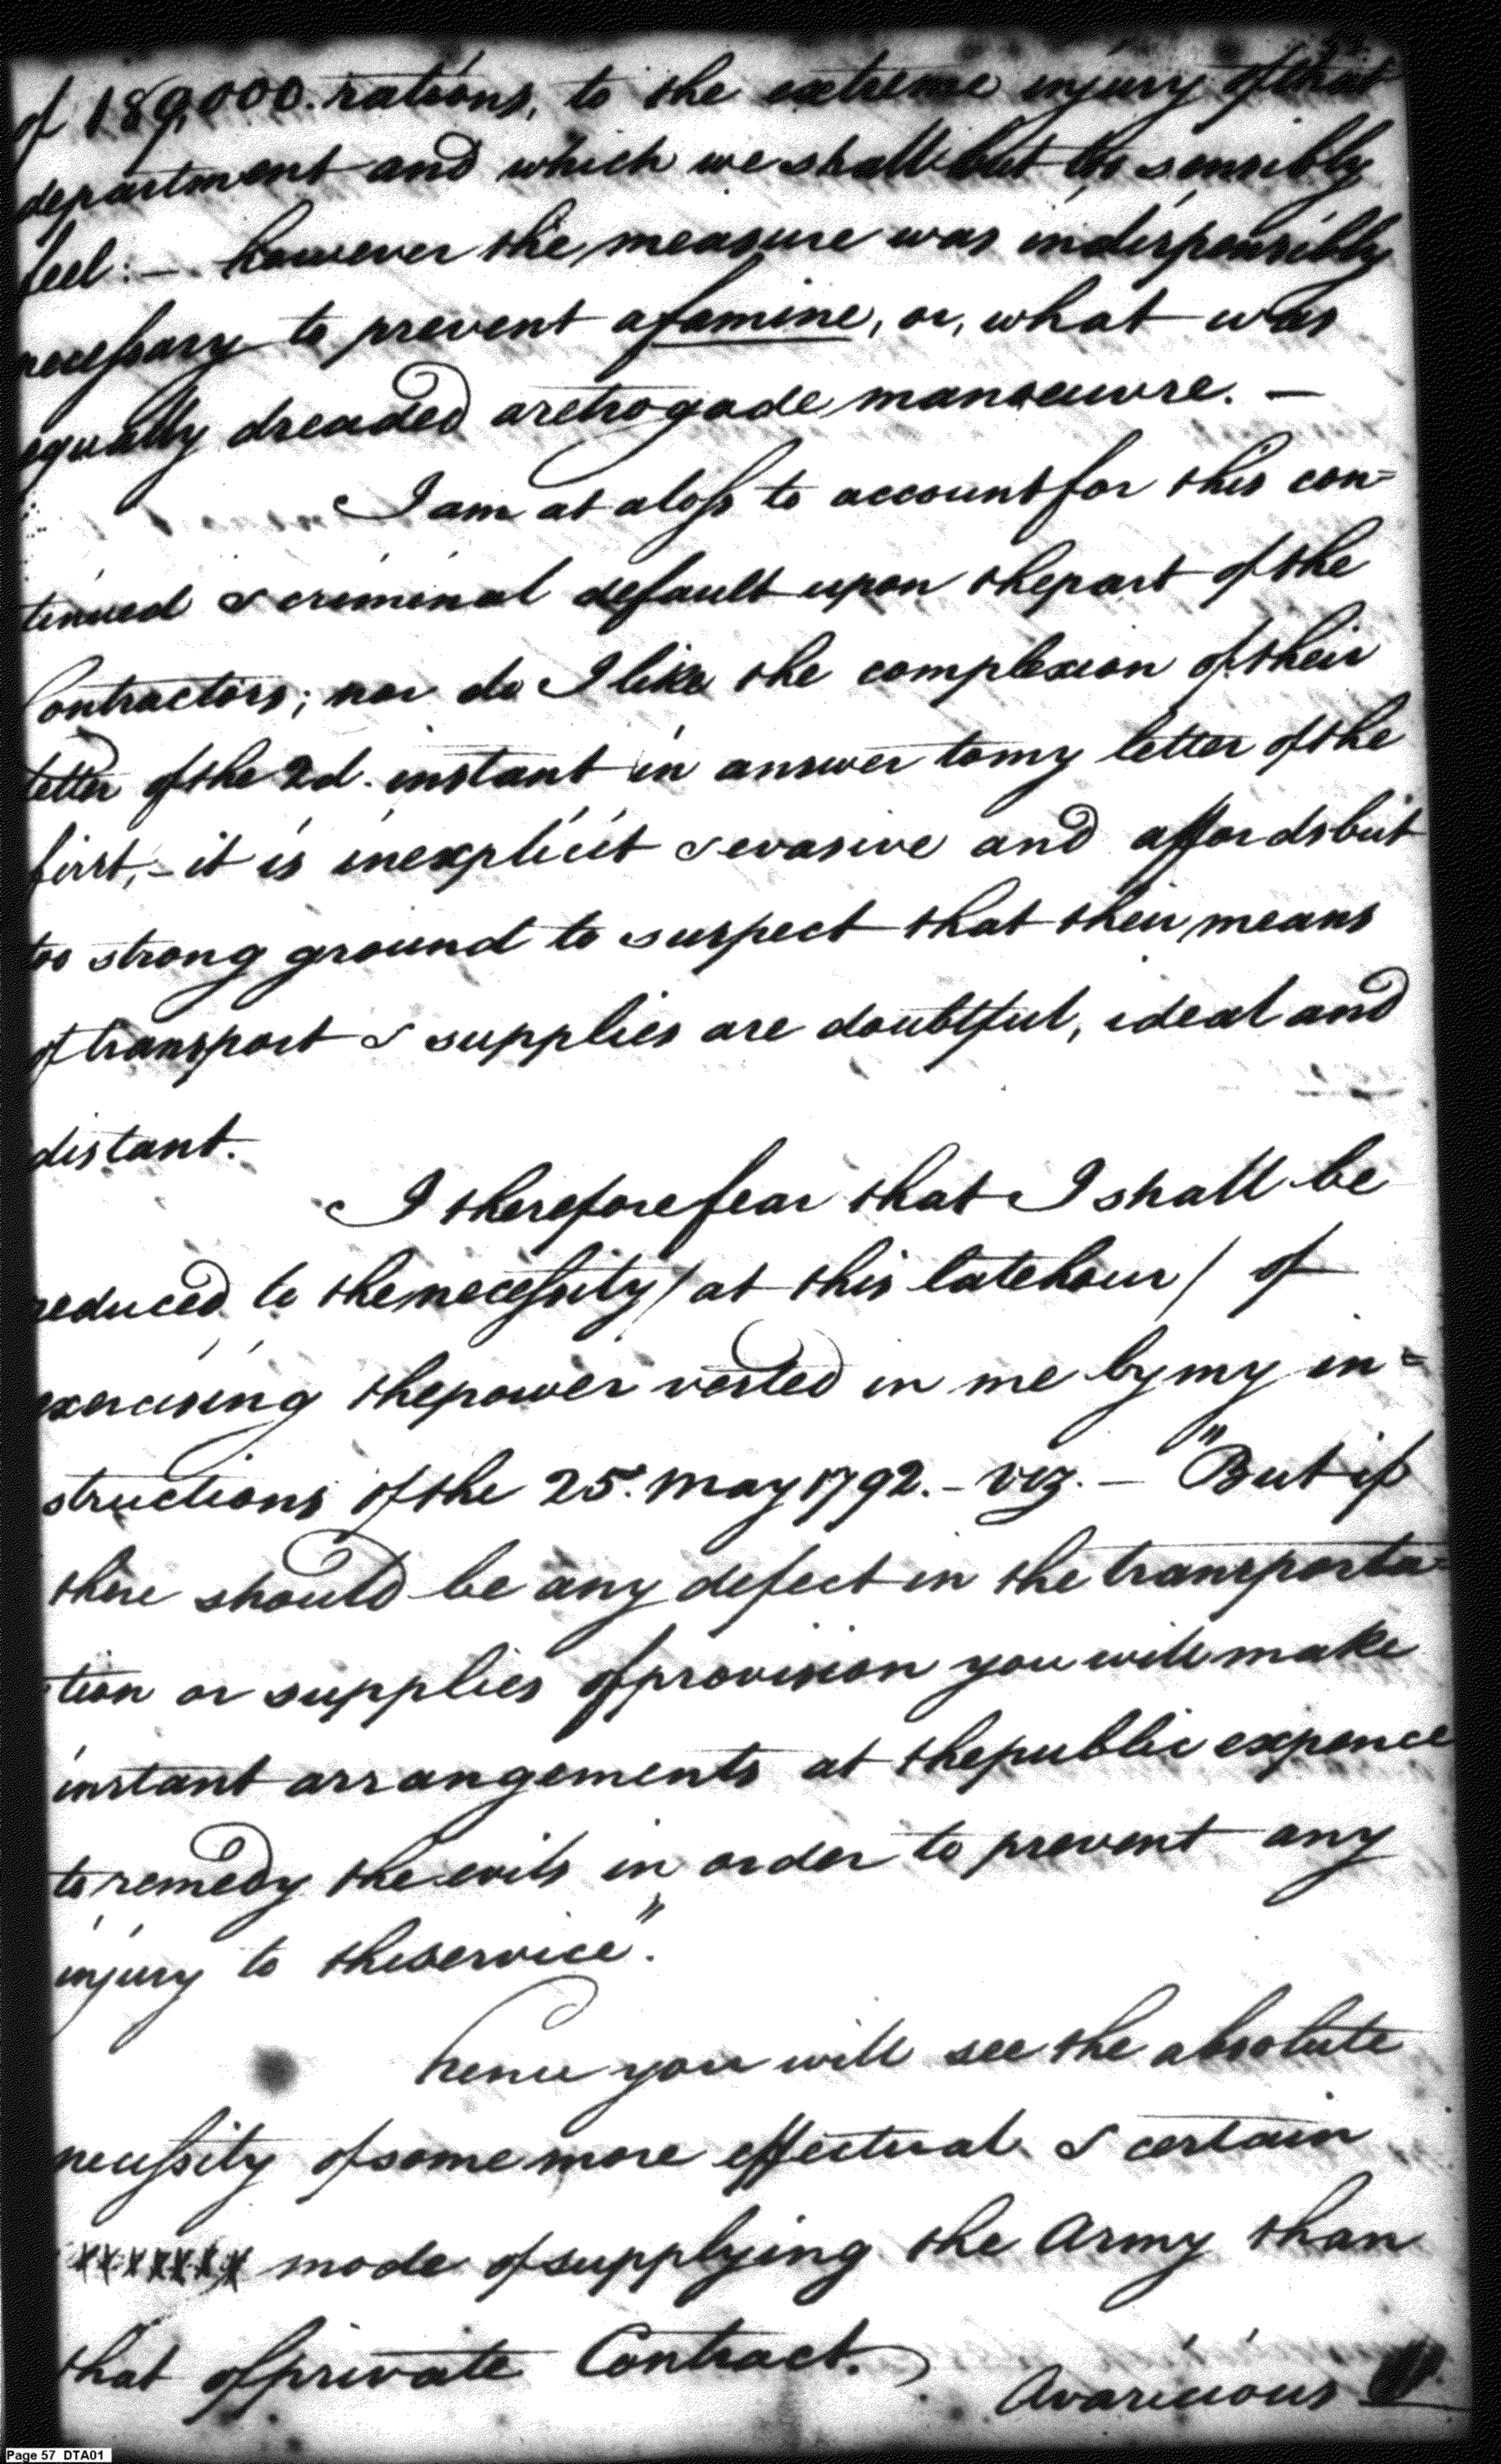 of 189,000. rations, to the extreme injury of that
department and which we shall but too sensibly
feel: — however the measure was indispensibly
necessary to prevent a famine, or, what was
equally dreaded a retrogade manoeuvre. —
I am at a loss to account for this con=
tinued & criminal default upon the part of the
Contractors; nor do I like the complexion of their
letter of the 2d. instant in answer to my letter of the
first, - it is inexplicit & evasive and affords but
too strong ground to suspect that their means
of transport & supplies are doubtful, ideal and
distant.
I therefore fear that I shall be
reduced to the necessity / at this late hour / of
exercising the power vested in me by my in=
structions of the 25. May 1792. - viz. - "But if
there should be any defect in the transporta=
tion or supplies of provision you will make
instant arrangements at the public expence
to remedy the evils in order to prevent any
injury to the service".
hence you will see the absolute
necessity of some more effectual & certain
mode of supplying the Army than
that of private Contract.
Avaricious
Page 57 DTA01